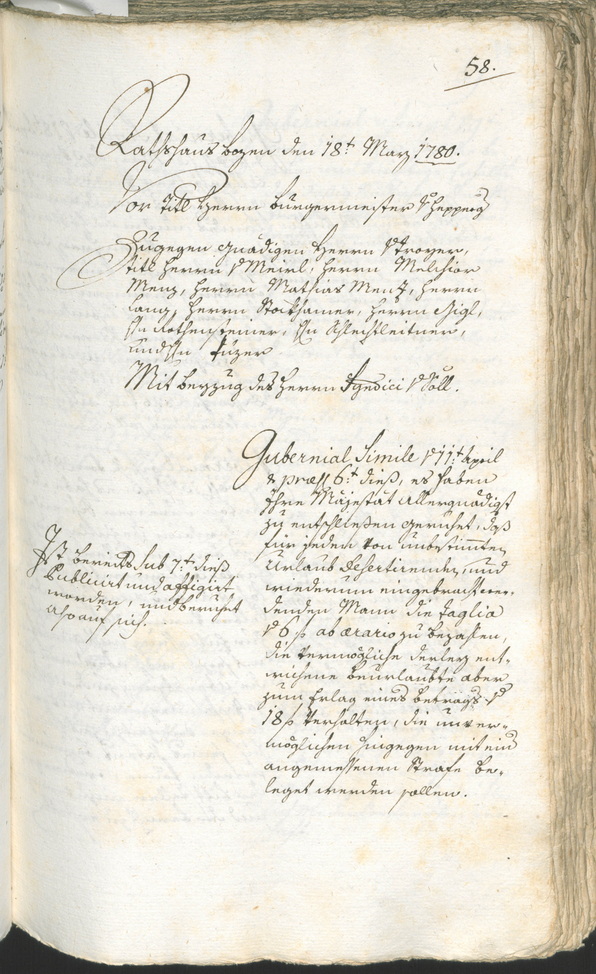 58.
Rathshaus bozen den 18t. Marz 1780.
Vor Titl Herrn burgermeister v Hepperg
Zugegen gnädigen Herrn v Troyer,
titl Herrn v Meirl, Herrn Melchior
Menz, Herrn Mathias Menz, Herrn
Lang, Herrn Stockhamer, Herrn Gigl,
Hn Rothensteiner, Hn Schlechtleitner,
und Hn
Mit beyzug des Herrn Syndici v Söll.
Gubernial Simile 11t. April
& præst 6t. dieß, es haben
Ihre Majestät allergnädigst
zu entschließen geruhet, daß
für jeden von unbestimmten
Urlaub desertirenden, und
wiederum eingebracht wer-
denden Mann die Taglia
6 f ab ærario zu bezahlen,
die vermögliche derley ent-
wichene beurlaubte aber
zum Erlag eines betrags
18 f verhalten, die unver-
möglichen hingegen mit ein
angemessenen Strafe be-
leget werden sollen.
Ist bereits sub 7t. dieß
Publicirt und affigirt
worden, und beruhet
also auf sich.